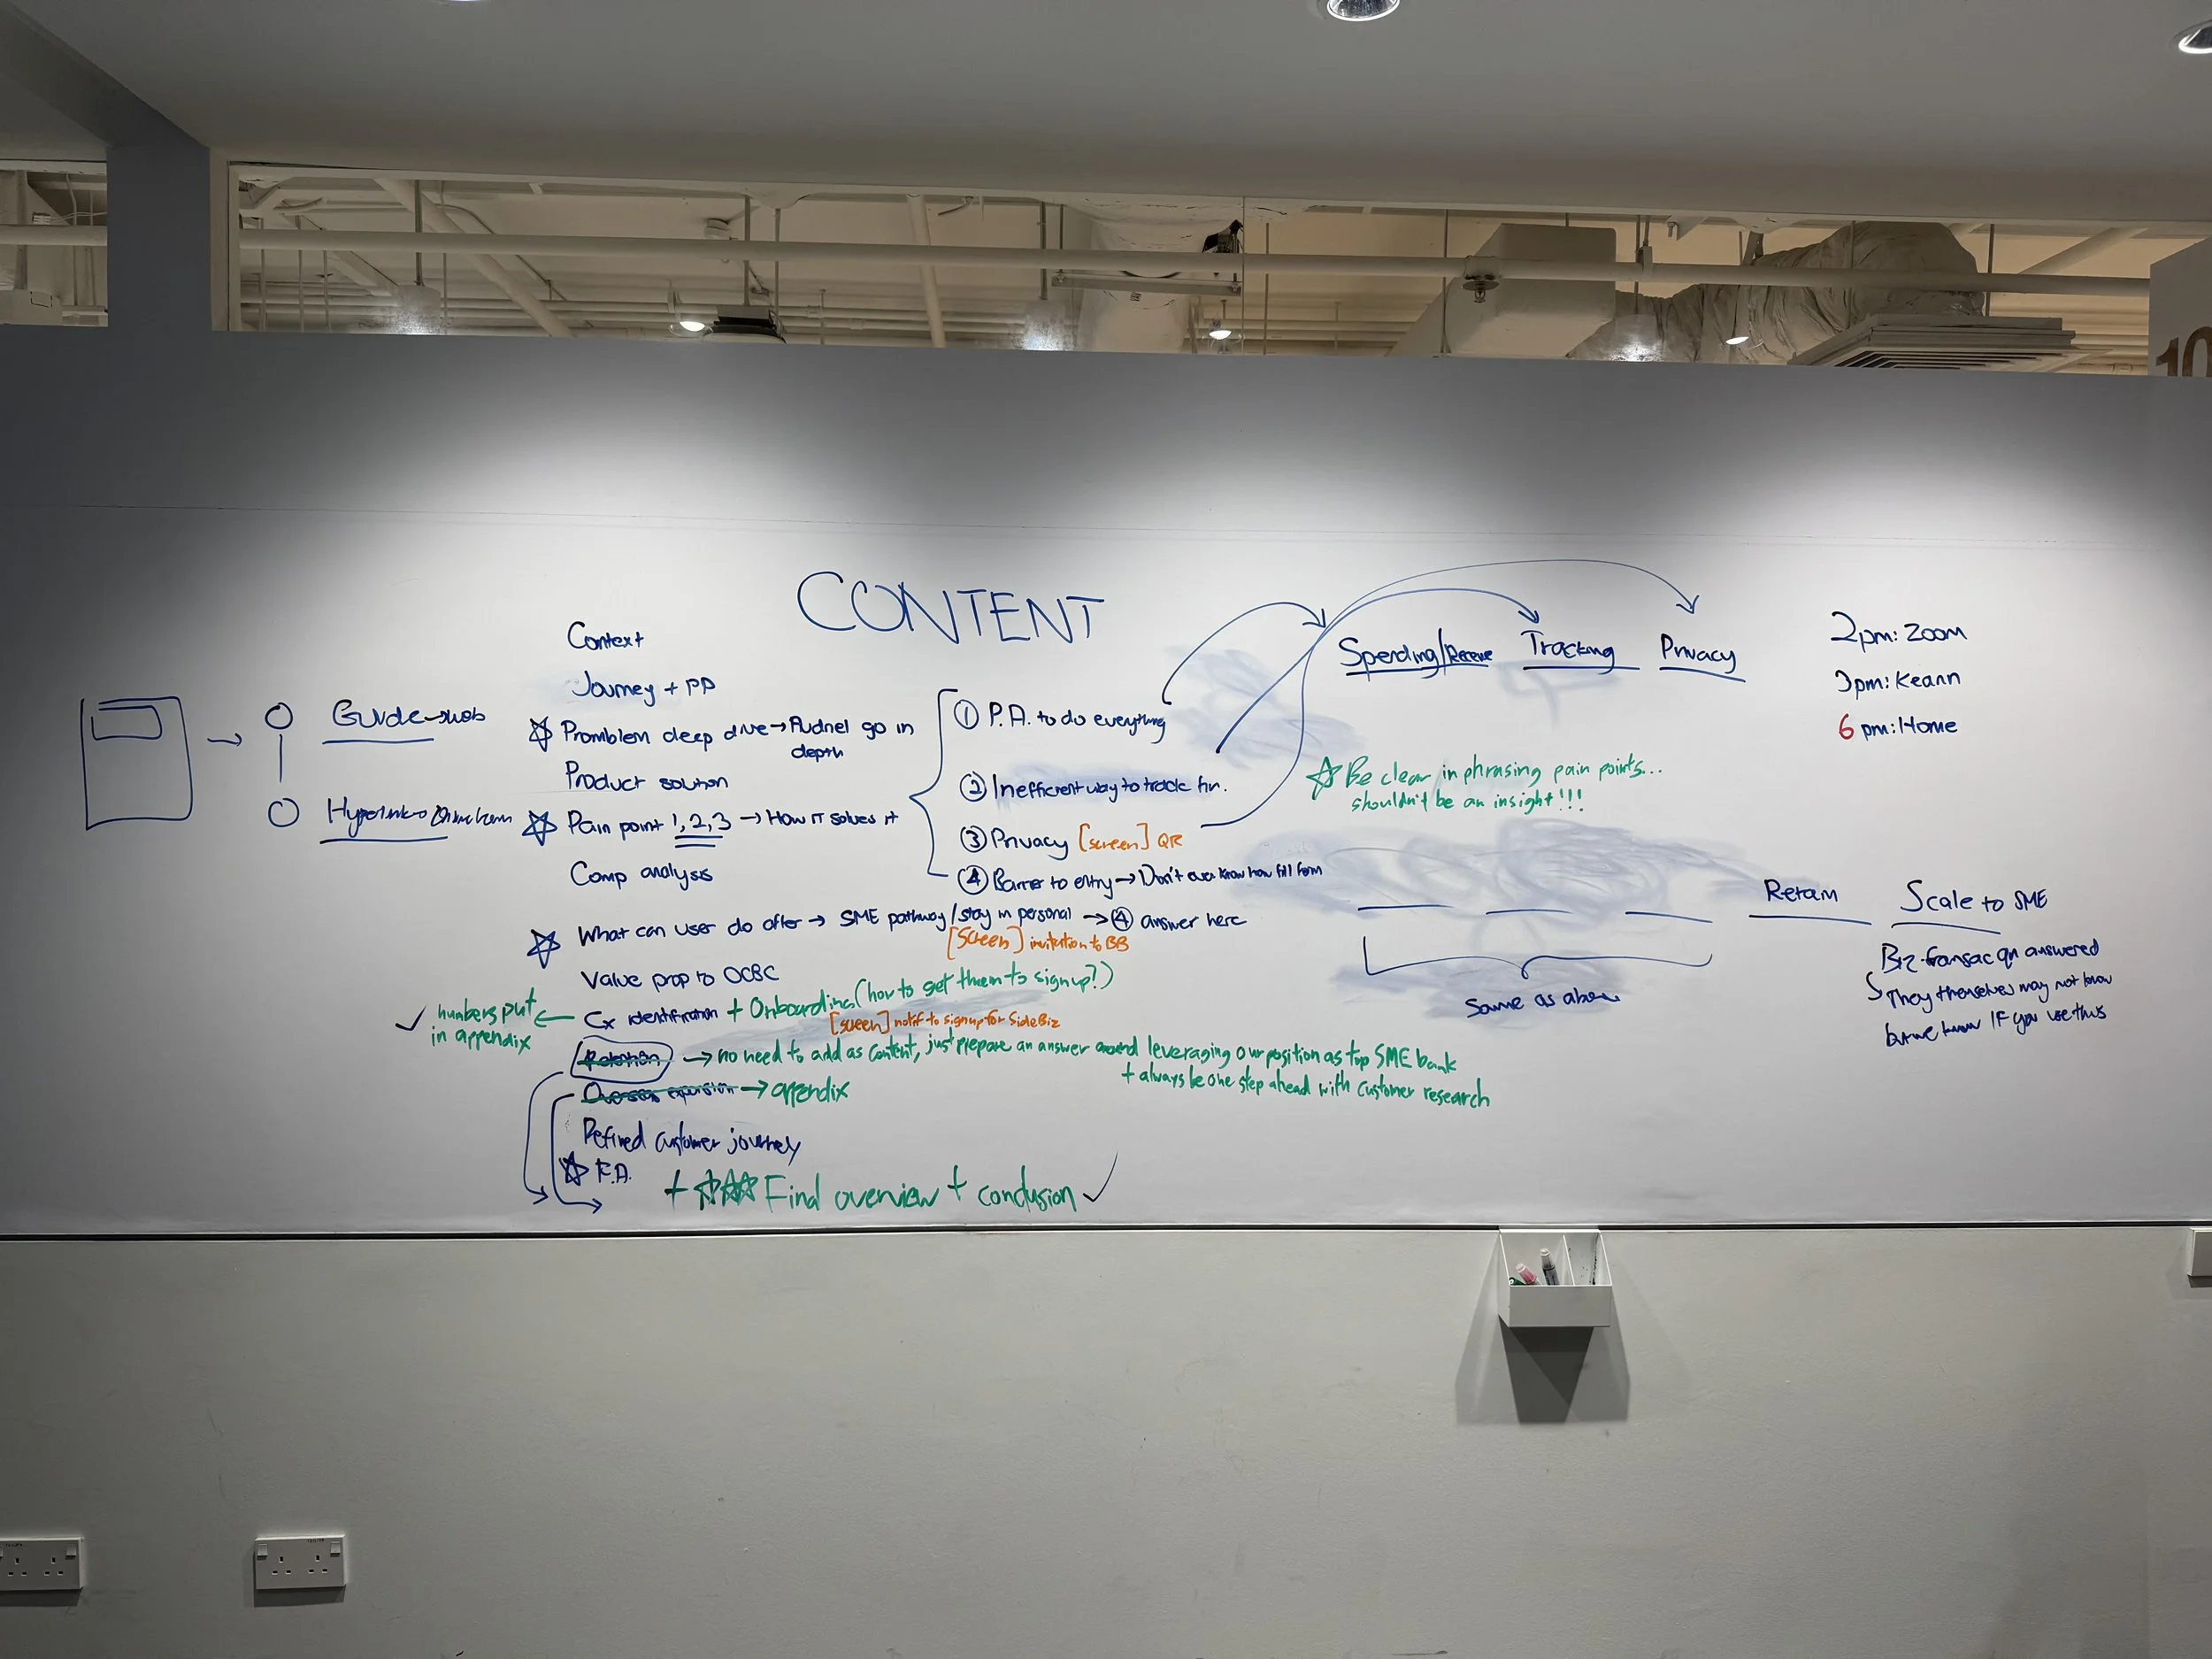 CONTENT
Context
Journey + PP
Guide
Promblem deep dive → Audriel go in
depth
Product solution
Pain point 1, 2, 3 → How it solves it
Comp analysis
What can user do after → SME pathway/stay in personal → ④ answer here
[Screen] invitation to BB
Value prop to OCBC
Cx identification + Onboarding (how to get them to signup?)
[screen] notif to signup for SideBiz
numbers put
in appendix
Retention → no need to add as content, just prepare an answer around leveraging our position as top SME bank
+ always be one step ahead with customer research
Overseas expansion → appendix
Refined customer journey
F.A.
+ Find overview + conclusion ✓
① P.A. to do everything
② Inefficient way to track fin.
③ Privacy [screen] QR
④ Barrier to entry → Don't even know how fill form
Spending/Receive Tracking Privacy
Be clear in phrasing pain points...
shouldn't be an insight!!!
Same as above
Retain
Scale to SME
Biz-transac qn answered
They themselves may not know
but we know if you use this
2pm: Zoom
3pm: Keann
6pm: Home
10